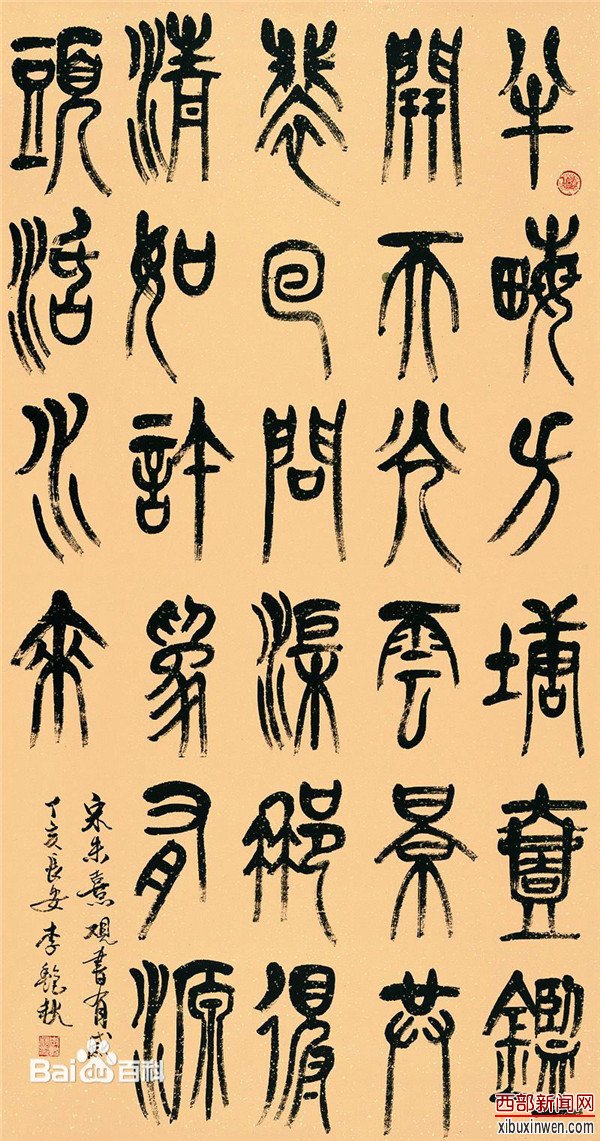 半畮方塘壹鑑
開天光雲景共
裴回問渠那得
清如許為有源
頭活水來
宋朱熹观書有感
丁亥長安李艷秋
Bai百科
西部新闻网
xibuxinwen.com